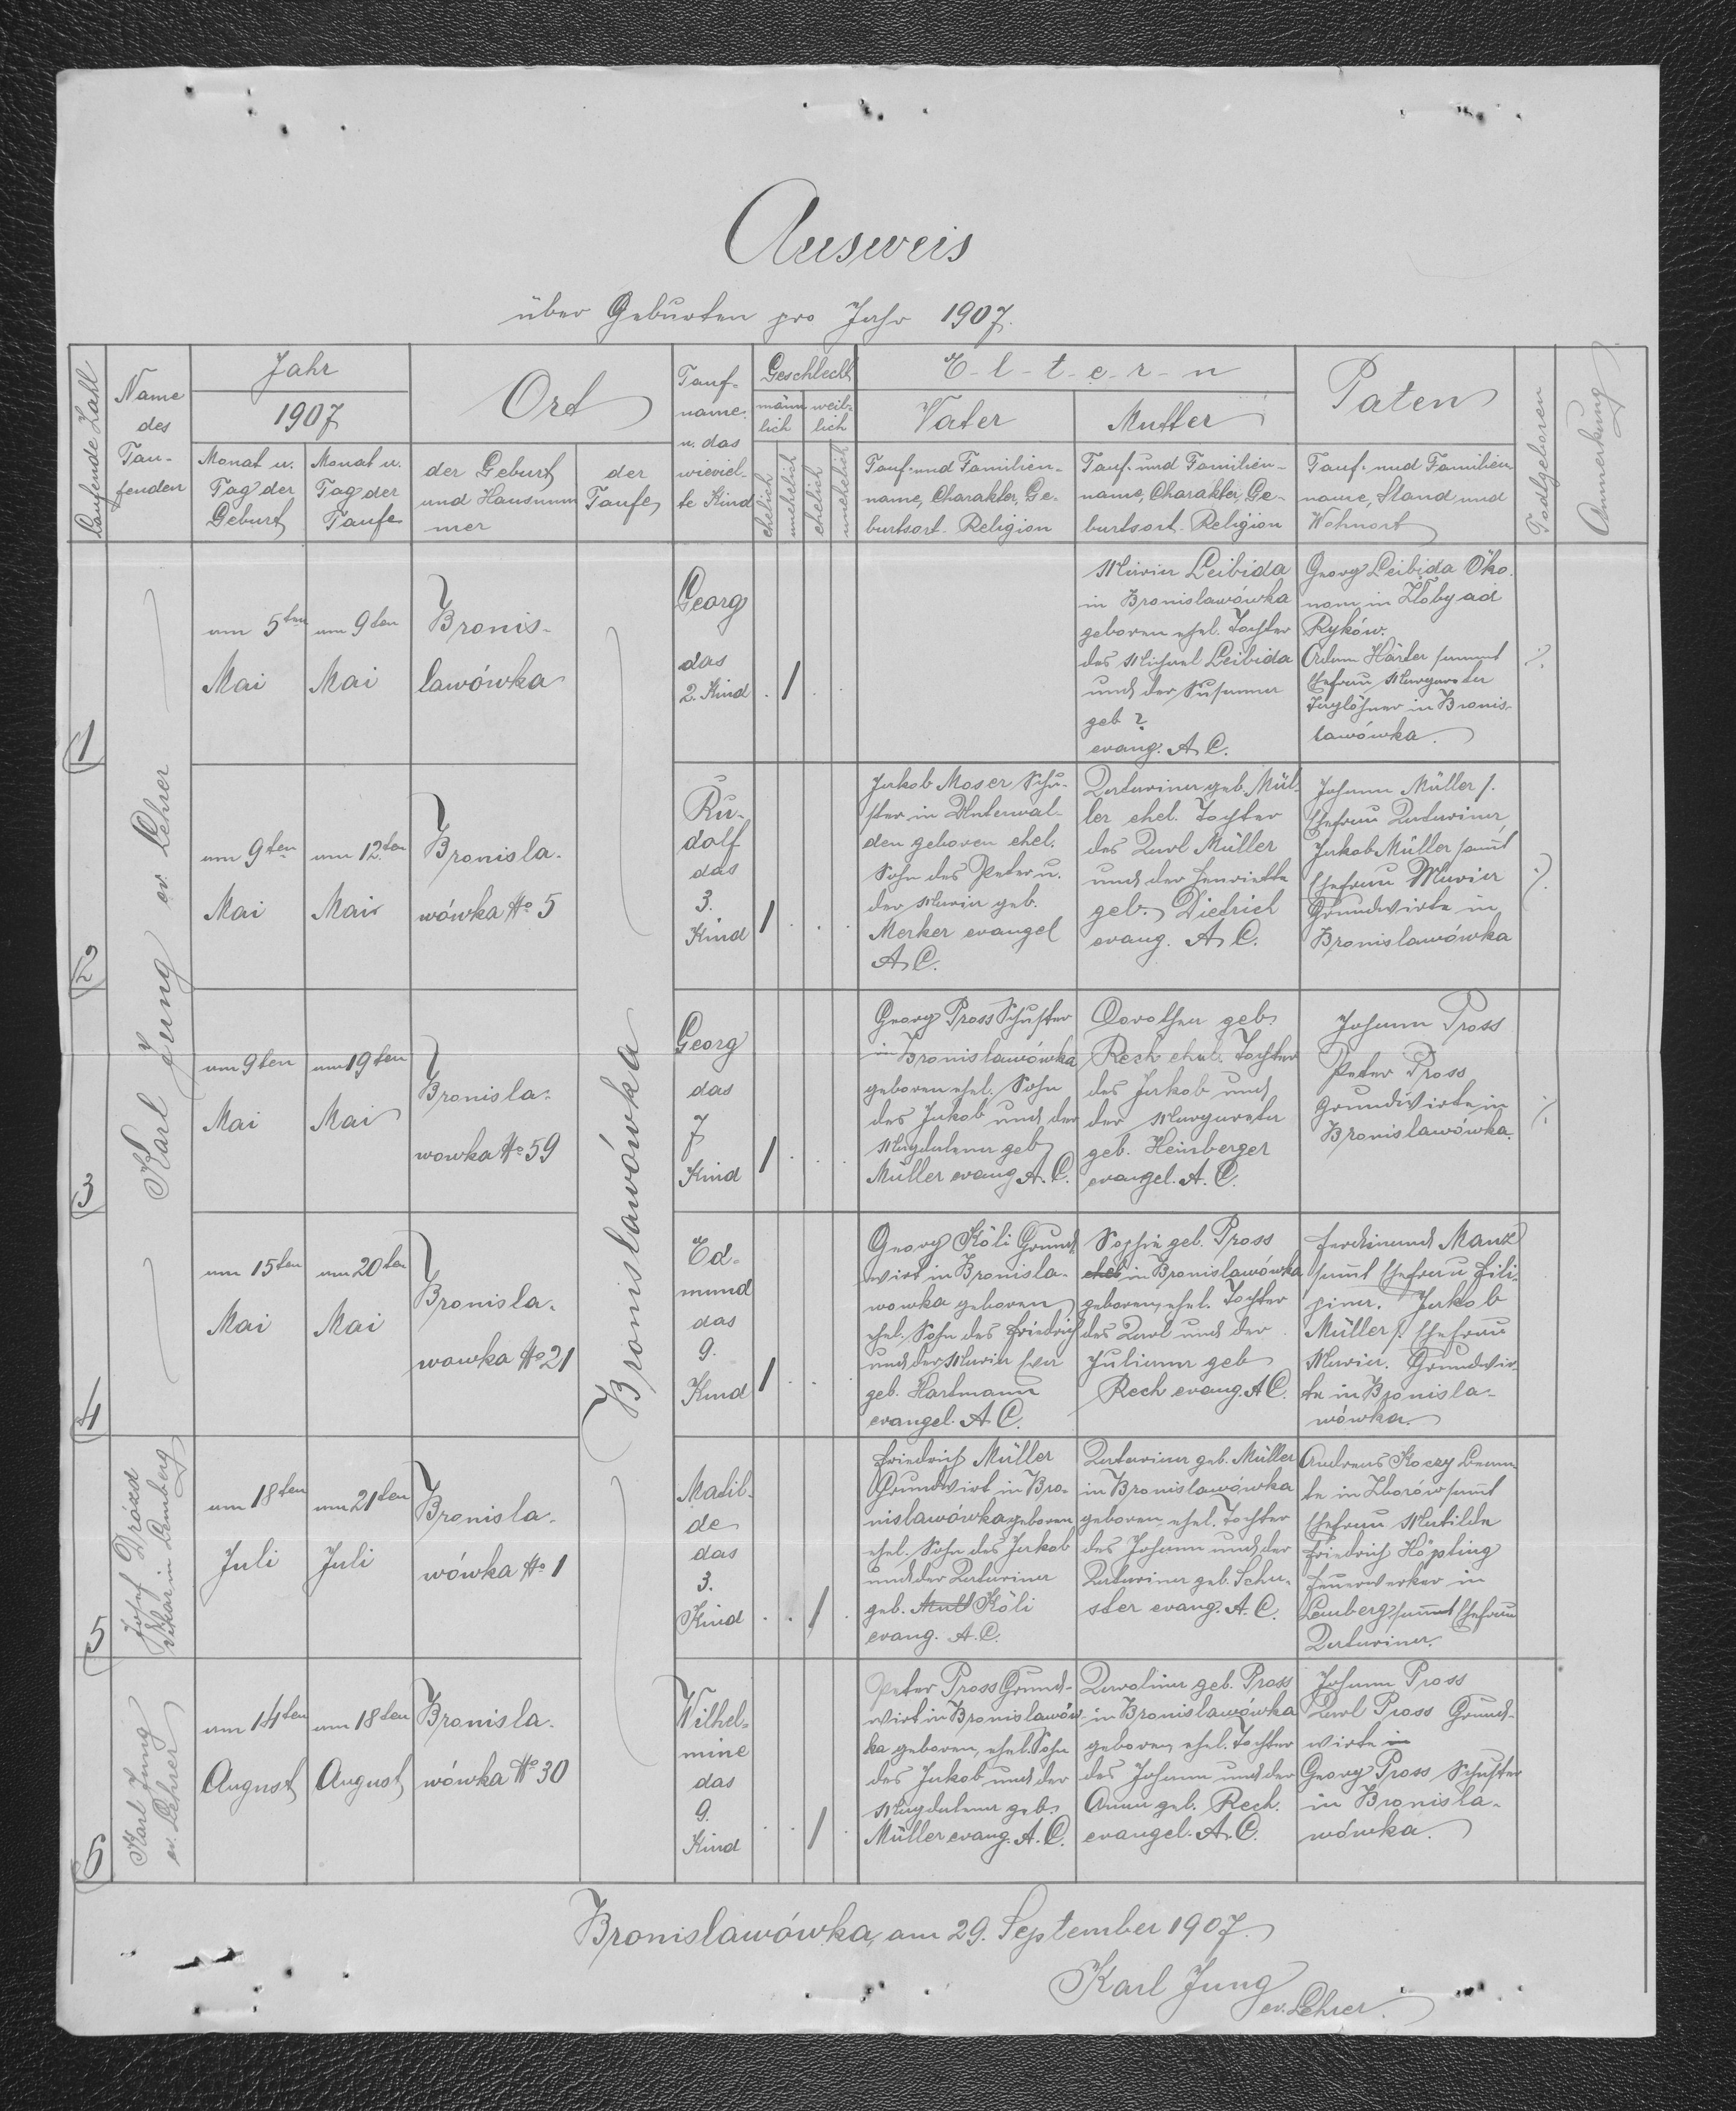 Ausweis
über Geburten pro Jahr 1907.
Laufende Zahl
Name
des
Tau-
fenden
Jahr
1907
Monat u.
Tag der
Geburt
Monat u.
Tag der
Taufe
Ort
der Geburt
und Hausnum
mer
der
Taufe
Tauf-
name
u. das
wieviel-
te Kind
Geschlecht
männ
lich
weib-
lich
ehelich
unehelich
ehelich
unehelich
E-l-t-e-r-n
Vater
Tauf- und Familien-
name, Charakter, Ge-
burtsort- Religion
Mutter
Tauf- und Familien-
name, Charakter, Ge-
burtsort- Religion
Paten
Tauf- und Familien
name, Stand und
Wohnort
Todtgeboren
Anmerkung
1
Karl Jung ev. Lehrer
am 5ten
Mai
am 9ten
Mai
Bronis-
lawówka
Bronislawówka
Georg
das
2. Kind
1
Maria Leibida
in Bronislawówka
geboren ehel. Tochter
des Michael Leibida
und der Susanna
geb ?
evang. A. C.
Georg Leibida Öko.
nom in Zloby ad
Ryków.
Adam Härter sammt
Ehefrau Margareta
Taglöhner in Bronis-
lawówka.
2
am 9ten
Mai
am 12.ten
Mai
Bronisla-
wówka No 5
Ru-
dolf
das
3.
Kind
1
Jakob Moser Schu-
ster in Unterwal-
den geboren ehel.
Sohn des Peter u.
der Maria geb.
Merker evangel
A. C.
Katarina geb. Mül-
ler ehel. Tochter
des Karl Müller
und der Henriette
geb. Dietrich
evang. A. C.
Johann Müller s.
Ehefrau Katarina,
Jakob Müller samt
Ehefrau Maria
Grundwirte in
Bronislawówka
3
am 9ten
Mai
am 19ten
Mai
Bronisla-
wowka No 59
Georg
das
7
Kind
1
Georg Pross Schuster
in Bronislawówka
geboren ehel. Sohn
des Jakob und der
Magdalena geb
Müller evang. A. C.
Dorothea geb.
Rech ehel. Tochter
des Jakob und
der Margareta
geb. Heinberger
evangel. A. C.
Johann Pross
Peter Pross
Grundwirte in
Bronislawówka.
4
am 15ten
Mai
am 20ten
Mai
Bronisla-
wowka No 21
Ed-
mund
das
9.
Kind
1
Georg Köli Grund
wirt in Bronisla-
wowka geboren
ehel. Sohn des Friedrich
und der Maria Eva
geb. Hartmann
evangel. A. C.
Sophie geb. Pross
ehel in Bronislawówka
geboren, ehel. Tochter
des Karl und der
Juliana geb
Rech evang. A C.
Ferdinand Manz
samt Ehefrau Fili-
pina. Jakob
Müller s. Ehefrau
Maria. Grundwir-
te in Bronisla-
wówka.
5
Josef Drózd
Vikar in Lemberg
am 18ten
Juli
am 21ten
Juli
Bronisla-
wówka No 1
Matil-
de
das
3.
Kind
1
Friedrich Müller
Grundwirt in Bro-
nislawówka geboren
ehel. Sohn des Jakob
und der Katarina
geb. Mull Köli
evang. A. C.
Katarina geb. Müller
in Bronislawówka
geboren, ehel. Tochter
des Johann und der
Katarina geb. Schu-
ster evang. A. C.
Andreas Koczy Beam-
te in Zborów samt
Ehefrau Matilde
Friedrich Höpling
Feuerwerker in
Lemberg sammt Ehefrau
Katarina.
6
Karl Jung
ev. Lehrer
am 14ten
August
am 18ten
August
Bronisla-
wówka No 30
Wilhel-
mine
das
9.
Kind
1
Peter Pross Grund-
wirt in Bronislawów-
ka geboren, ehel. Sohn
des Jakob und der
Magdalena geb.
Müller evang. A. C.
Karolina geb. Pross
in Bronislawówka
geboren, ehel. Tochter
des Johann und der
Anna geb. Rech.
evangel. A. C.
Johann Pross
Karl Pross Grund-
wirte in
Georg Pross Schuster
in Bronisla-
wówka.
Bronislawówka, am 29. September 1907.
Karl Jung
ev. Lehrer.